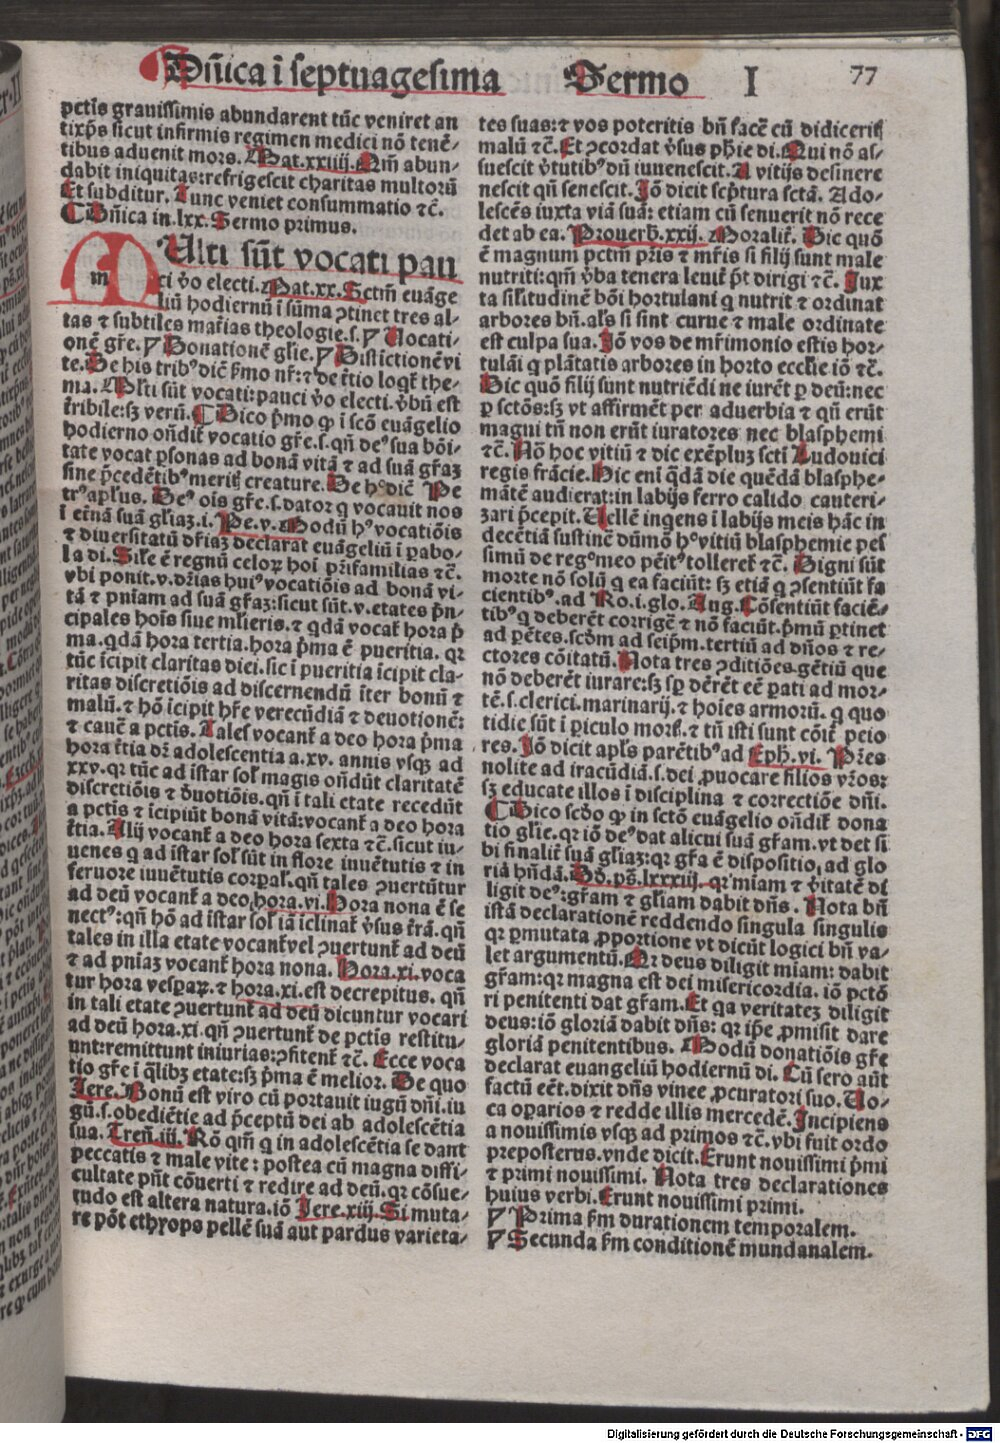 Dñica i septuagesima Sermo I 77
pctis grauissimis abundarent tūc veniret an
tixp̄s sicut infirmis regimen medici nō tenē-
tibus aduenit mors. Mat.xxiiij. Qm̄ abun-
dabit iniquitas: refrigescit charitas multorū
Et subditur. Tunc veniet consummatio ⁊c.
¶ Dñica in .lxx. Sermo primus.
MUlti sūt vocati pau
ci v̄o electi. Mat.xx. Sctm̄ euāge
liū hodiernū i sūma ꝯtinet tres al-
tas ⁊ subtiles mat̄ias theologie.s. Uocati-
onē gr̄e. Donationē gl̄ie. Distictionē vi
te. De his trib⁹ dic̄ p̄mo
ma. Mlti sūt vocati: pauci v̄o electi. v̄bū est
t̄ribile: sꝫ verū. ¶ Dico p̄mo ꝙ i scō euāgelio
hodierno on̄dit̄ vocatio gr̄e.s. qn̄ de⁹ sua bōi-
tate vocat ꝑsonas ad bonā vitā ⁊ ad suā gr̄aꝫ
sine p̄cedētib⁹ meritꝭ creature. De h⁹ dic̄ Pe
tr⁹ apl̄us. De⁹ ois gr̄e.s. dator q vocauit nos
i et̄nā suā gl̄iaꝫ.i. Pe.v. Modū h⁹ vocatiōis
⁊ diuersitatū dr̄iaꝫ declarat euāgeliū i ꝑabo-
la di. Sil̄e ē regnū celoꝝ hoi pr̄ifamilias ⁊c.
vbi ponit .v. dr̄ias hui⁹ vocatiōis ad bonā vi-
tā ⁊ pn̄iam ad suā gr̄aꝫ: sicut sūt .v. etates p̄n-
cipales hois siue ml̄ieris. ⁊ qdā vocat̄ hora p̄
ma. qdā hora tertia. hora p̄ma ē pueritia. qr
tūc īcipit claritas diei. sic i pueritia īcipit cla-
ritas discretiōis ad discernendū īter bonū ⁊
malū. ⁊ hō īcipit hr̄e verecūdiā ⁊ deuotionē:
⁊ cauē a pctis. Tales vocant̄ a deo hora p̄ma
hora t̄tia dr̄ adolescentia a .xv. annis vsqꝫ ad
xxv. qr tūc ad īstar sol̄ magis on̄dūt claritatē
discretiōis ⁊ d̄uotiōis. qn̄ i tali etate recedūt
a pctis ⁊ īcipiūt bonā vitā: vocant̄ a deo hora
t̄tia. Alij vocant̄ a deo hora sexta ⁊c. sicut iu-
uenes q ad īstar sol̄ sūt in flore iuuētutis ⁊ in
feruore iuuētutis corꝑal̄. qn̄ tales ꝯuertūtur
ad deū vocant̄ a deo hora.vi. Hora nona ē se
nect⁹: qn̄ hō ad īstar sol̄ iā iclinat̄ v̄sus t̄rā. qn̄
tales in illa etate vocant̄ vel ꝯuertunt̄ ad deū
⁊ ad pn̄iaꝫ vocant̄ hora nona. Hora.xi. voca
tur hora vesꝑaꝝ. ⁊ hora.xi. est decrepitus. qn̄
in tali etate ꝯuertunt̄ ad deū dicuntur vocari
ad deū hora.xi. qn̄ ꝯuertunt̄ de pctis restitu-
unt: remittunt iniurias: ꝯfitent̄ ⁊c. Ecce voca
tio gr̄e i qlibꝫ etate: sꝫ p̄ma ē melior. De quo
Jere. Bonū est viro cū portauit iugū dn̄i. iu
gū.s. obediētie ad p̄ceptū dei ab adolescētia
sua. Tren̄.iij. Rō qm̄ q in adolescētia se dant
peccatis ⁊ male vite: postea cū magna diffi-
cultate pn̄t cōuerti ⁊ redire ad deū. qr cōsue-
tudo est altera natura. iō Jere.xiij. Si muta-
re pōt ethyops pellē suā aut pardus varieta-
tes suas: ⁊ vos poteritis bn̄ facē cū didiceritꝭ
malū ⁊c. Et ꝯcordat v̄sus ph̄ie di. Qui nō as-
suescit v̄tutib⁹ dū iuuenescit. A vitijs desinere
nescit qn̄ senescit. Jō dicit sc̄ptura sctā. Ado-
lescēs iuxta viā suā: etiam cū senuerit nō rece
det ab ea. Prouerb̄.xxij. Moralit̄. Hic quō
ē magnum pctm̄ pr̄is ⁊ mr̄is si filij sunt male
nutriti: qm̄ v̄ba tenera leuit̄ pn̄t dirigi ⁊c. Jux
ta sil̄itudinē bōi hortulani q nutrit ⁊ ordinat
arbores bn̄. al̄s si sint curue ⁊ male ordinate
est culpa sua. Jō vos de mr̄imonio estis hor-
tulāi q plātatis arbores in horto eccl̄ie iō ⁊c.
Hic quō filij sunt nutriēdi ne iurēt ꝑ deū: nec
ꝑ sctōs: sꝫ vt affirmēt per aduerbia ⁊ qn̄ erūt
magni tn̄ non erūt iuratores nec blasphemi
⁊c. Nō hoc vitiū ⁊ dic exēpluꝫ scti Ludouici
regis frācie. Hic eni qdā die quēdā blasphe-
mātē audierat: in labijs ferro calido canteri-
zari p̄cepit. Uellē ingens i labijs meis hāc in
decētiā sustinē dūmō h⁹ vitiū blasphemie pes
simū de reg⁰ meo pēit⁹ tolleret̄ ⁊c. Digni sūt
morte nō solū q ea faciūt: sꝫ etiā q ꝯsentiūt fa
cientib⁹. ad Ro.i. glo. Aug. Cōsentiūt faciē-
tib⁹ q deberēt corrigē ⁊ nō faciūt. p̄mū ꝑtinet
ad pētes. scd̄m ad seip̄m. tertiū ad dn̄os ⁊ re-
ctores cōitatū. Nota tres ꝯditiōes. gētiū que
nō deberēt iurare: sꝫ sꝑ dērēt eē ꝑati ad mor-
tē.s. clerici. marinarij. ⁊ hoies armorū. q quo
tidie sūt i ꝑiculo mort̄. ⁊ tn̄ isti sunt cōit̄ peio
res. Jō dicit apl̄s parētib⁹ ad Eph̄.vi. Pr̄es
nolite ad iracūdiā.s. dei ꝓuocare filios vr̄os:
sꝫ educate illos i disciplina ⁊ correctiōe dn̄i.
¶ Dico scd̄o ꝙ in sctō euāgelio on̄dit̄ dona
tio gl̄ie. qr iō de⁹ dat alicui suā gr̄am. vt det si
bi finalit̄ suā gl̄iaꝫ: qr gr̄a ē dispositio, ad glo
riā hn̄dā. lxxxiij. qr miam ⁊ v̄itatē di
ligit de⁹: gr̄am ⁊ gl̄iam dabit dn̄s. Nota bn̄
istā declarationē reddendo singula singulis
qr ꝑmutata ꝓportione vt dicūt logici bn̄ va-
let argumentū. Qr deus diligit miam: dabit
gr̄am: qr magna est dei misericordia. iō pctō
ri penitenti dat gr̄am. Et qa veritateꝫ diligit
deus: iō gloriā dabit dn̄s: qr ip̄e ꝓmisit dare
gloriā penitentibus. Modū donatiōis gr̄e
declarat euangeliū hodiernū di. Cū sero aūt
factū eēt. dixit dn̄s vinee ꝓcuratori suo. Uo-
ca oꝑarios ⁊ redde illis mercedē. Jncipiens
a nouissimis vsqꝫ ad primos ⁊c. vbi fuit ordo
preposterus. vnde dicit. Erunt nouissimi p̄mi
⁊ primi nouissimi. Nota tres declarationes
huius verbi. Erunt nouissimi primi.
Prima s̄m durationem temporalem.
Secunda s̄m conditionē mundanalem.
Digitalisierung gefördert durch die Deutsche Forschungsgemeinschaft - DFG